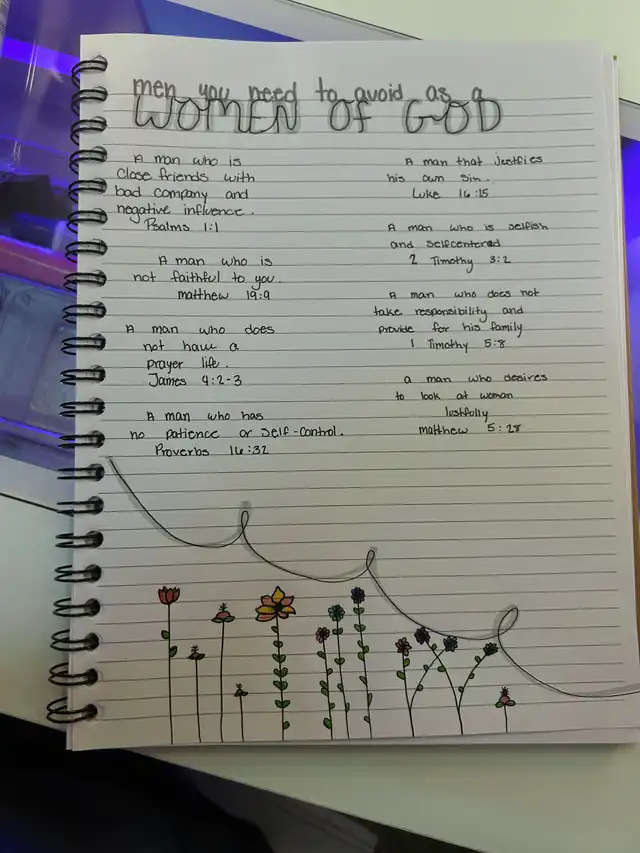 men you need to avoid as a
WOMEN OF GOD
A man who is
close friends with
bad company and
negative influence.
Psalms 1:1
A man who is
not faithful to you.
matthew 19:9
A man who does
not have a
prayer life.
James 4:2-3
A man who has
no patience or self-control.
Proverbs 16:32
A man that jestfies
his own sin.
Luke 16:15
A man who is selfish
and selfcentered
2 Timothy 3:2
A man who does not
take responsibility and
provide for his family
1 Timothy 5:8
a man who desires
to look at woman
lustfully
matthew 5:28